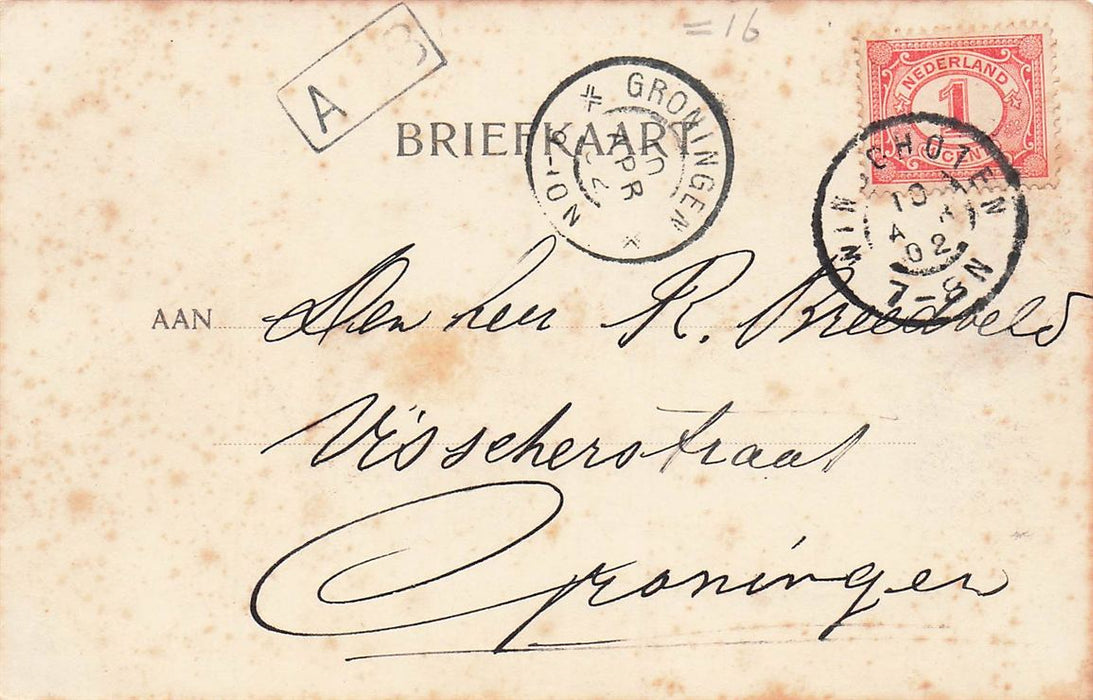 =16
A
BRIEFKAART
GRONINGEN
APR
NEDERLAND
1
CENT
WINSCHOTEN
10 APR
02
7-8 N
AAN Den heer R. Breedveld
Visscherstraat
Groningen